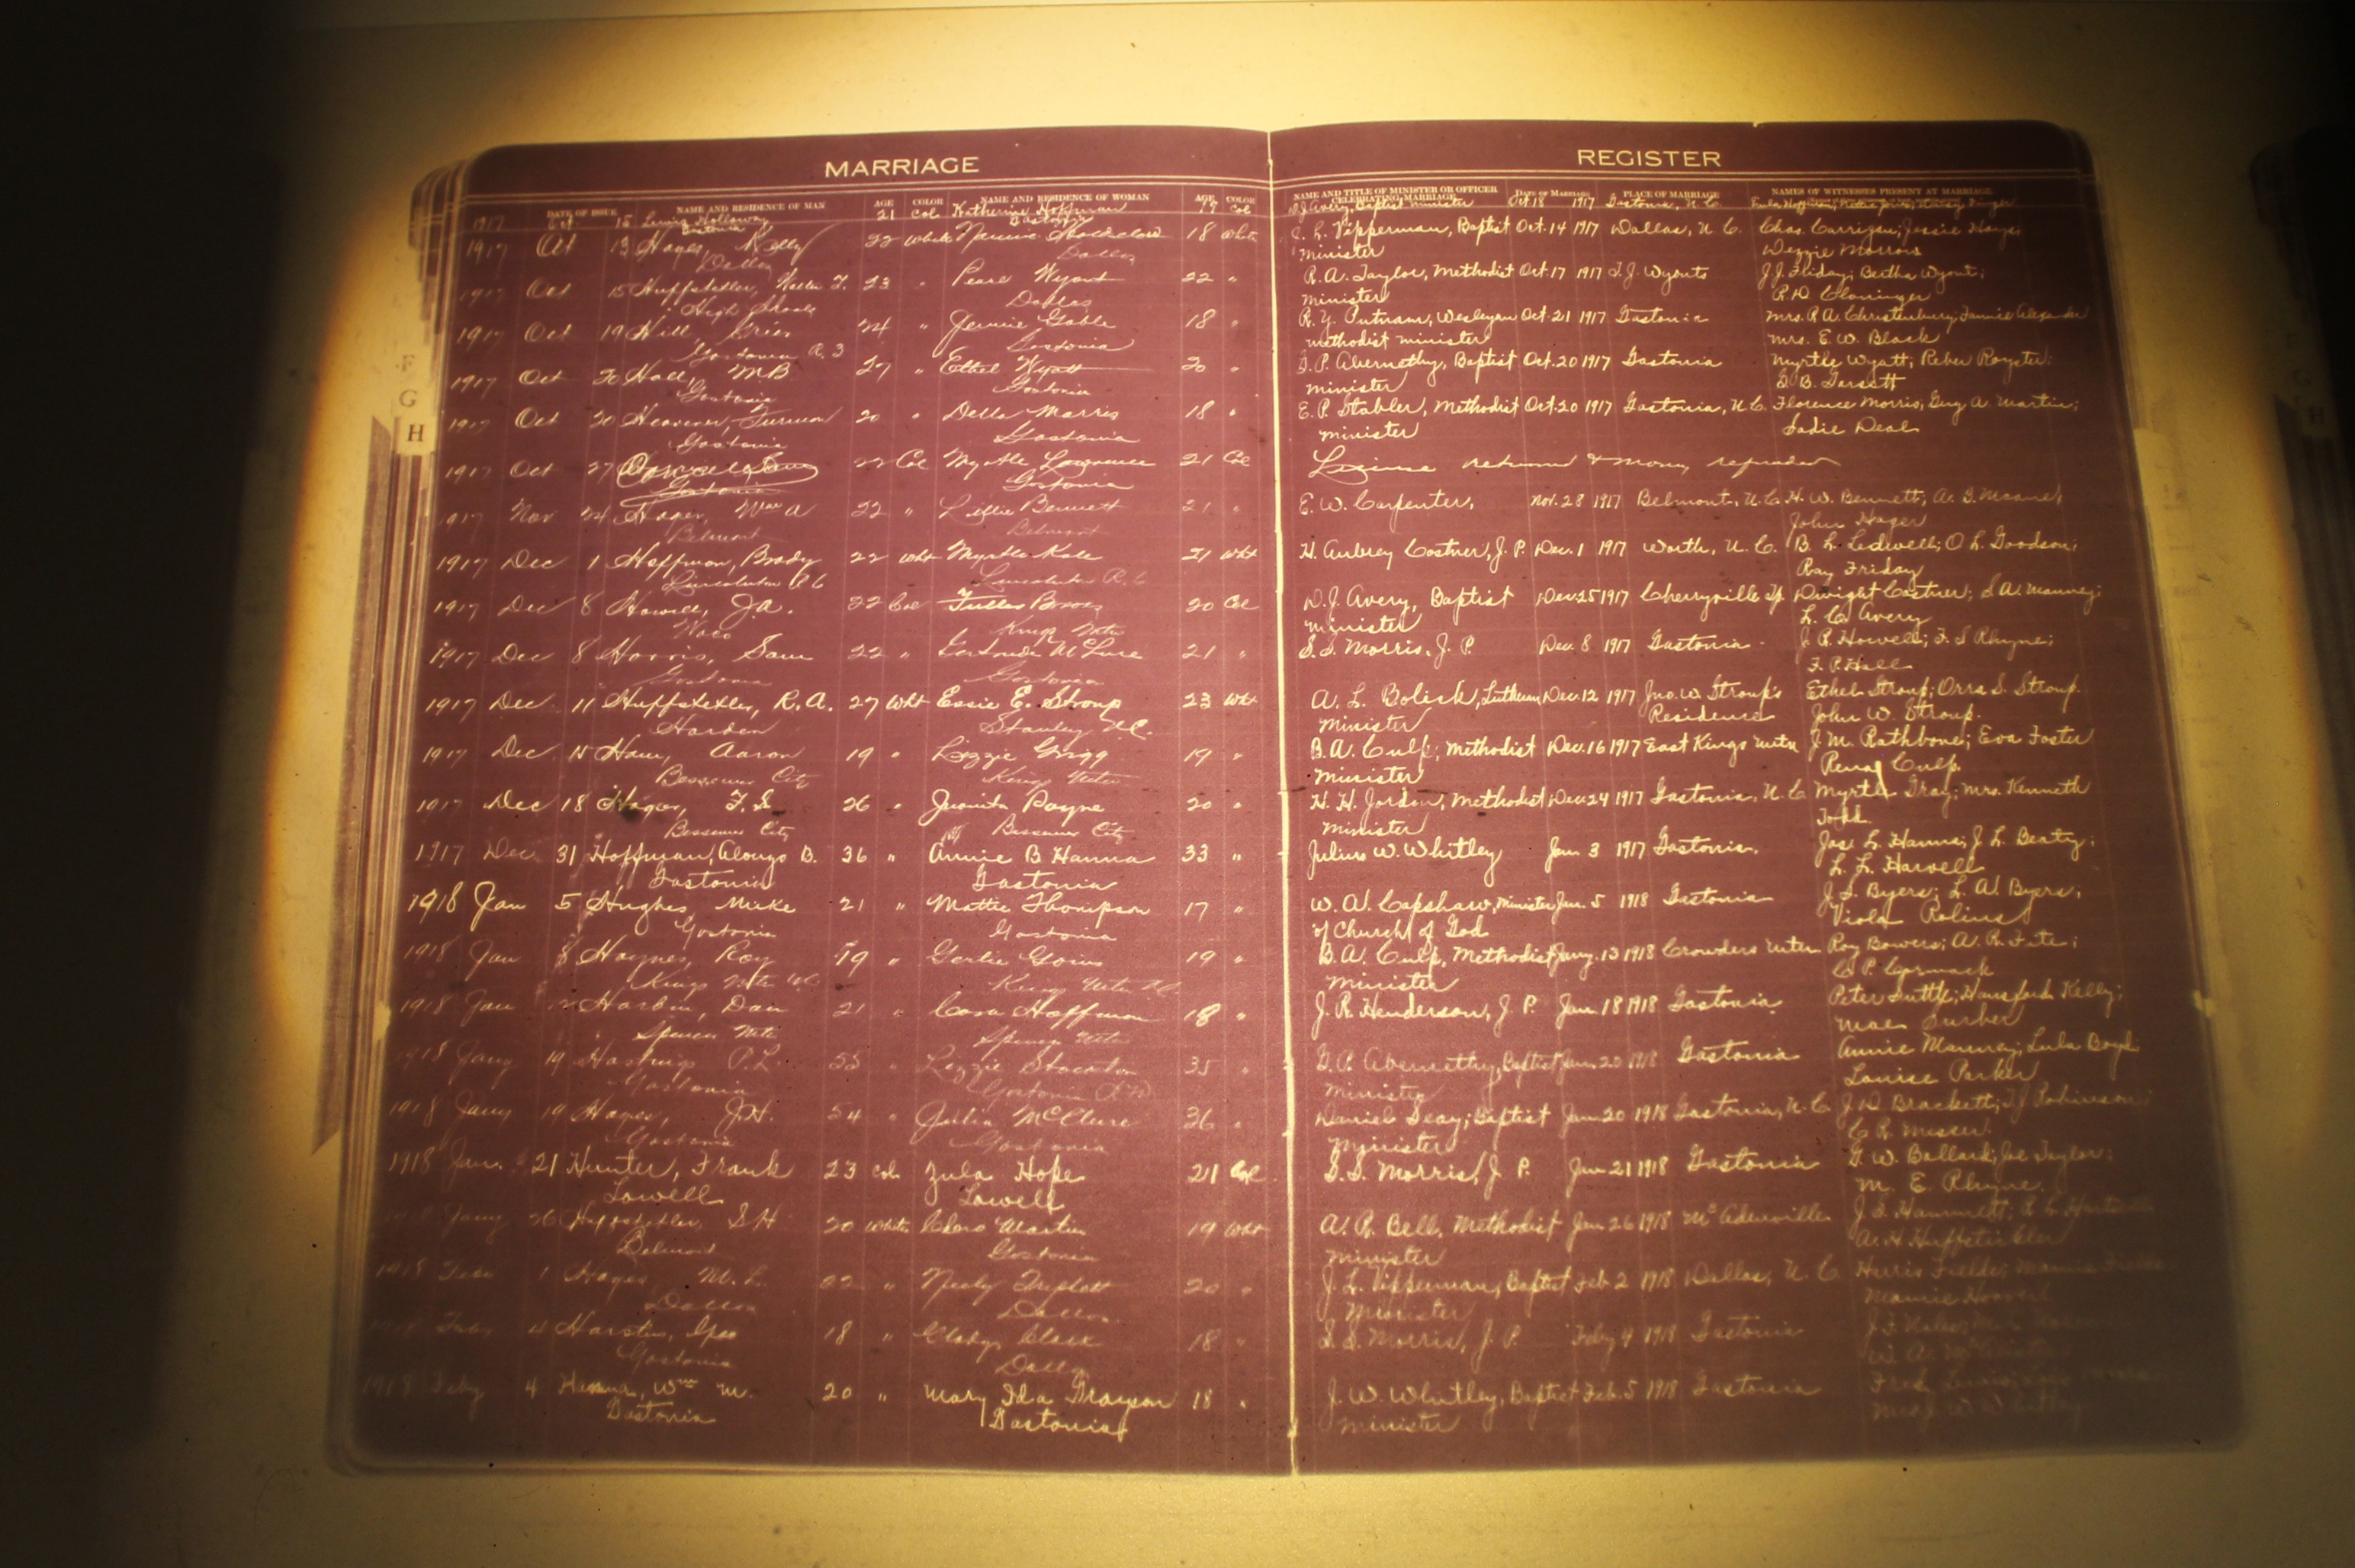 MARRIAGE
DATE OF ISSUE NAME AND RESIDENCE OF MAN AGE COLOR NAME AND RESIDENCE OF WOMAN AGE COLOR
1917 Oct. 15 Holloway 21 Col Katherine Hoffman 19 Col
Gastonia Gastonia
1917 Oct 13 Hayes, Kelly 22 White Nannie 18 White
Dallas Dallas
1917 Oct 15 Huffstetler, T. 23 " Pearl Wyont 22 "
High Shoals Dallas
1917 Oct 19 Hill, Grier 24 " Jennie Goble 18 "
Gastonia R. 3 Gastonia
1917 Oct 20 Hall, M.B. 27 " Ethel Wyatt 20 "
Gastonia Gastonia
1917 Oct 20 Heavner, Furman 20 " Della Morris 18 "
Gastonia Gastonia
1917 Oct 27 22 Col Myrtle Lawrence 21 Col
Gastonia Gastonia
1917 Nov 24 Hager, Wm A 22 " Lillie Bennett 21 "
Belmont Belmont
1917 Dec 1 Hoffman, Brady 22 Wht Myrtle Kale 21 Wht
Lincolnton R 6 Lincolnton R. 6
1917 Dec 8 Howell, J.A. 22 Col 20 Col
Waco Kings Mtn
1917 Dec 8 Harris, Sam 22 " Gertrude McClure 21 "
Gastonia Gastonia
1917 Dec 11 Huffstetler, R.A. 27 Wht Essie E. Stroup 23 Wht
Harden Stanley N.C.
1917 Dec 15 Aaron 19 " Lizzie Grigg 19 "
Bessemer City Kings Mtn
1917 Dec 18 Hager, F. 26 " Juanita Payne 20 "
Bessemer City Bessemer City
1917 Dec 31 Hoffman, Alonzo B. 36 " Annie B Hanna 33 "
Gastonia Gastonia
1918 Jan 5 Hughes Mike 21 " Mattie Thompson 17 "
Gastonia Gastonia
1918 Jan 8 Haynes, Roy 19 " Gertie Goins 19 "
Kings Mtn NC Kings Mtn N.C.
1918 Jan 12 Harbin, Dan 21 " Cora Hoffman 18 "
Spencer Mtn Spencer Mtn
1918 Jany 19 Hastings P.L. 55 " Lizzie Stockton 35 "
Gastonia Gastonia
1918 Jany 19 Hager, J.H. 54 " Julia McClure 36 "
Gastonia Gastonia
1918 Jan. 21 Hunter, Frank 23 col Zula Hope 21 Col
Lowell Lowell
1918 Jany 26 Huffstetler, S H 20 White Martin 19 Wht
Belmont Gastonia
1918 1 Hager M. L. 22 " Triplett 20 "
Dallas Dallas
4 18 " Gladys 18 "
Gastonia Dallas
1918 Feby 4 Hanna, Wm M. 20 " Mary Ida Grayson 18 "
Gastonia Gastonia
F
G
H
REGISTER
NAME AND TITLE OF MINISTER OR OFFICER CELEBRATING MARRIAGE DATE OF MARRIAGE PLACE OF MARRIAGE NAMES OF WITNESSES PRESENT AT MARRIAGE
D.J. Avery, Baptist Minister Oct. 18 1917 Gastonia, N. C.
J. L. Vipperman, Baptist Oct. 14 1917 Dallas, N. C. Chas. Carrigan; Jessie Hayes
Minister Morrow
R. A. Taylor, Methodist Oct. 17 1917 J. Wyonts J. J. Friday; Bertha Wyont;
Minister R. D. Cloninger
R. Y. Putnam, Wesleyan Oct. 21 1917 Gastonia Mrs. P. A. Christenbury; Fannie Alexander
Methodist Minister Mrs. E. W. Black
G. P. Abernethy, Baptist Oct. 20 1917 Gastonia Myrtle Wyatt; Reber Royster;
Minister B. Garrett
E. P. Stabler, Methodist Oct. 20 1917 Gastonia, N. C. Florence Morris; Guy A. Martin;
Minister Sadie Deal
License returned & money refunded
E. W. Carpenter, Nov. 28 1917 Belmont, N. C. H. W. Bennett; A. Moore;
John Hager
H. Aubrey Costner, J. P. Dec. 1 1917 Worth, N. C. B. L. Ledwell; O L. Goodson;
Ray Friday
D. J. Avery, Baptist Dec 25 1917 Cherryville Dwight Costner; S A. Mauney;
Minister L. C. Avery
S. S. Morris, J. P. Dec. 8 1917 Gastonia J. R. Howell; F. S Rhyne;
F. P. Hall
A. L. Bolick, Lutheran Dec. 12 1917 Jno. W. Stroup's Ethel Stroup; Orra S. Stroup
Minister Residence John W. Stroup.
B. A. Culp, Methodist Dec. 16 1917 East Kings Mtn J. M. Rathbone; Eva Foster
Minister Rena Culp.
H. H. Jordan, Methodist Dec 24 1917 Gastonia, N. C Myrtle Gray; Mrs. Kenneth
Minister Todd
Julius W. Whitley Jan 3 1917 Gastonia. Jas. L. Hanna; J. L. Beaty;
L. L. Harvell
W. A. Capshaw, Minister Jan. 5 1918 Gastonia J. S. Byers; L. A. Byers;
of Church of God Viola Rolins
B. A. Culp, Methodist Jany. 13 1918 Crowders Mtn Roy Bowers; A. R. Fite;
Minister C. P. Cormack
J. R. Henderson, J. P. Jan. 18 1918 Gastonia Peter Suttle; Hansford Kelly;
Mae Surber
G. P. Abernethy, Baptist Jan. 20 1918 Gastonia Annie Mauney; Lula Boyd
Minister Louise Parker
Daniel Seay; Baptist Jan 20 1918 Gastonia, N. C. J D. Brackett; Robinson;
Minister C. R. Messer.
S. S. Morris, J. P. Jan 21 1918 Gastonia G. W. Ballard; Joe Taylor;
M. E. Rhyne.
A. R. Bell, Methodist Jan 26 1918 McAdenville J. S. Hammett;
Minister A. H. Huffstickler
J. L. Vipperman, Baptist Feb. 2 1918 Dallas, N. C Harris Fields; Mamie
Minister Mamie Hoover
S. S. Morris, J. P. Feby 4 1918 Gastonia
W. A.
J. W. Whitley, Baptist Feb. 5 1918 Gastonia
Minister Mrs. J. W. Whitley